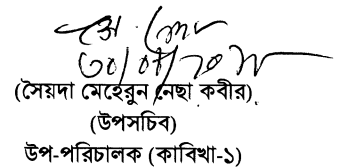 (সৈয়দা মেহেরুন নেছা কবীর)
(উপসচিব)
উপ-পরিচালক (কাবিখা-১)